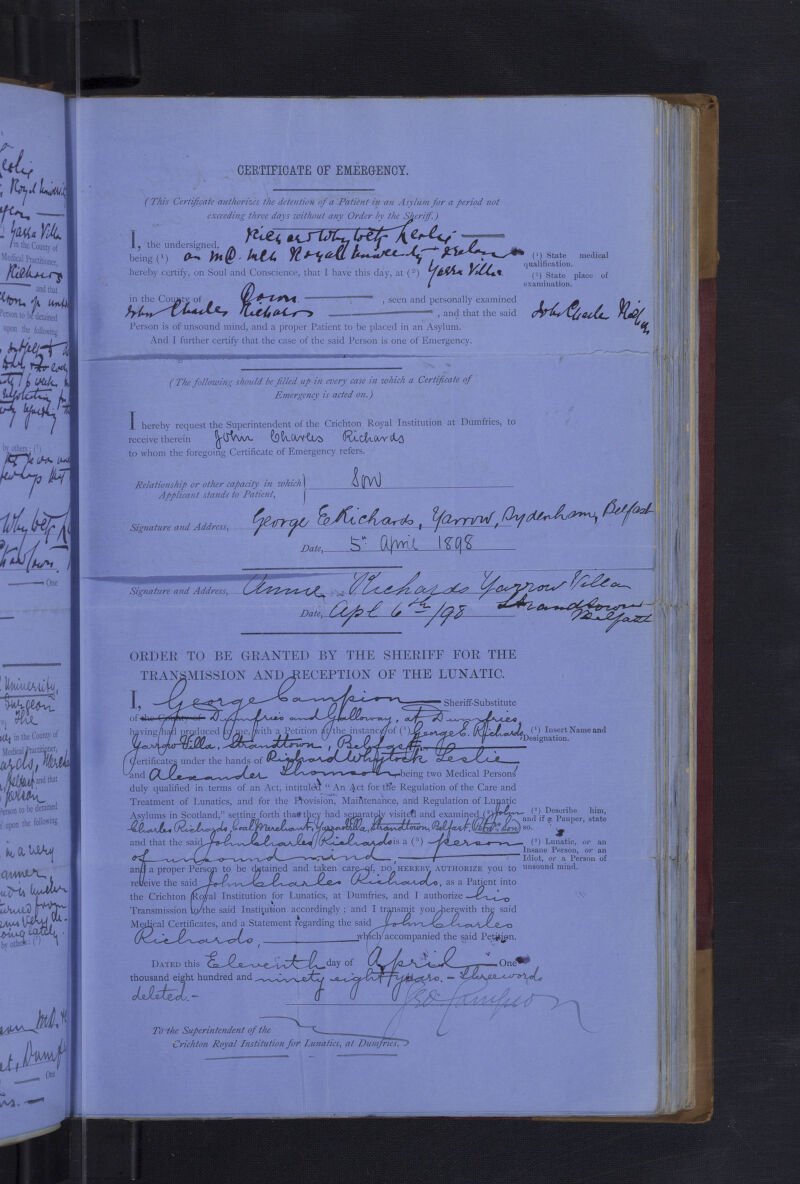 CERTIFICATE OF EMERGENCY.
(This Certificate authorizes the detention of a Patient in an Asylum for a period not
exceeding three days without any Order by the Sheriff.)
I, the undersigned, Richard Whytock Leslie
being (¹) an M.D. Royal University Ireland
hereby certify, on Soul and Conscience, that I have this day, at (²) Yarra Villa
(¹) State medical
qualification.
(²) State place of
examination.
in the County of Down, seen and personally examined
John Charles Richards, and that the said John Charles Richards
Person is of unsound mind, and a proper Patient to be placed in an Asylum.
And I further certify that the case of the said Person is one of Emergency.
(The following should be filled up in every case in which a Certificate of
Emergency is acted on.)
I hereby request the Superintendent of the Crichton Royal Institution at Dumfries, to
receive therein John Charles Richards
to whom the foregoing Certificate of Emergency refers.
Relationship or other capacity in which
Applicant stands to Patient, Son
Signature and Address, George E Richards, Yarrow, Sydenham, Belfast
Date, 5th April 1898
Signature and Address, Annie Richards Yarrow Villa
Strandtown
Belfast
Date, Apl 6th/98
ORDER TO BE GRANTED BY THE SHERIFF FOR THE
TRANSMISSION AND RECEPTION OF THE LUNATIC.
I, George Campion Sheriff-Substitute
of the County of Dumfries and Galloway, at Dumfries
having had produced to me, with a Petition at the instance of (¹) George E. Richards,
(¹) Insert Name and
Designation.
Yarrow Villa, Strandtown, Belfast,
Certificates under the hands of Richard Whytock Leslie
and Alexander Thomson being two Medical Persons
duly qualified in terms of an Act, intituled "An Act for the Regulation of the Care and
Treatment of Lunatics, and for the Provision, Maintenance, and Regulation of Lunatic
Asylums in Scotland," setting forth that they had separately visited and examined (²) John
(²) Describe him,
and if a Pauper, state
so.
Charles Richards, Coal Merchant, Yarrow Villa, Strandtown, Belfast,
and that the said John Charles Richards is a (³) person
(³) Lunatic, or an
Insane Person, or an
Idiot, or a Person of
unsound mind.
of unsound mind,
and a proper Person to be detained and taken care of, DO HEREBY AUTHORIZE you to
receive the said John Charles Richards, as a Patient into
the Crichton Royal Institution for Lunatics, at Dumfries, and I authorize his
Transmission to the said Institution accordingly; and I transmit you herewith the said
Medical Certificates, and a Statement regarding the said John Charles
Richards, which accompanied the said Petition.
DATED this Eleventh day of April One
thousand eight hundred and ninety eight years. – Three words
deleted. –
Geo Campion
To the Superintendent of the
Crichton Royal Institution for Lunatics, at Dumfries.